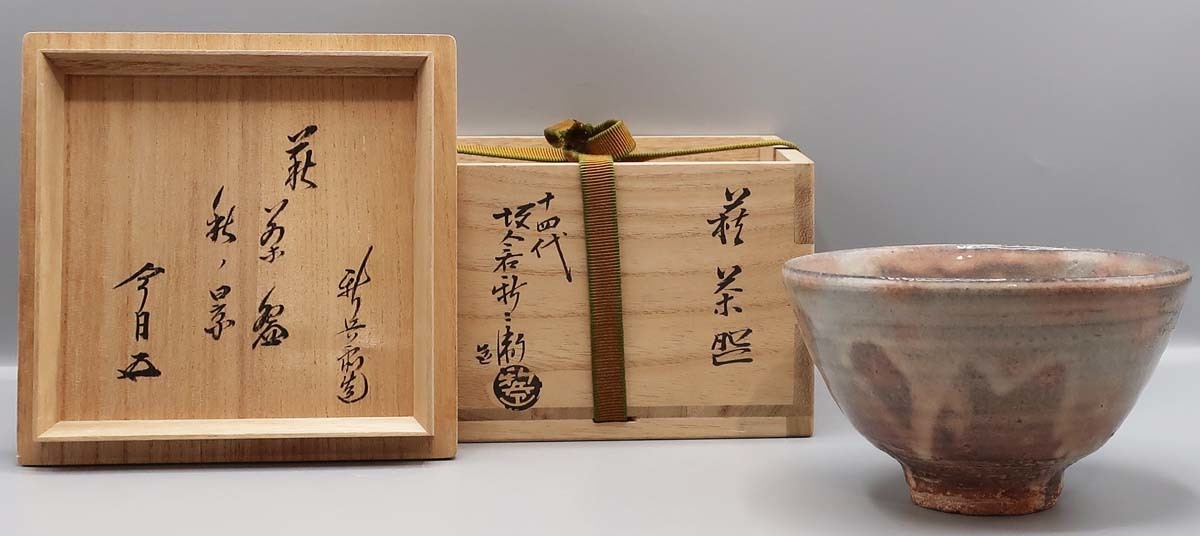 新兵衛造
萩茶盌
秋ノ景
今日庵
萩茶盌
十四代
坂倉新兵衛
造